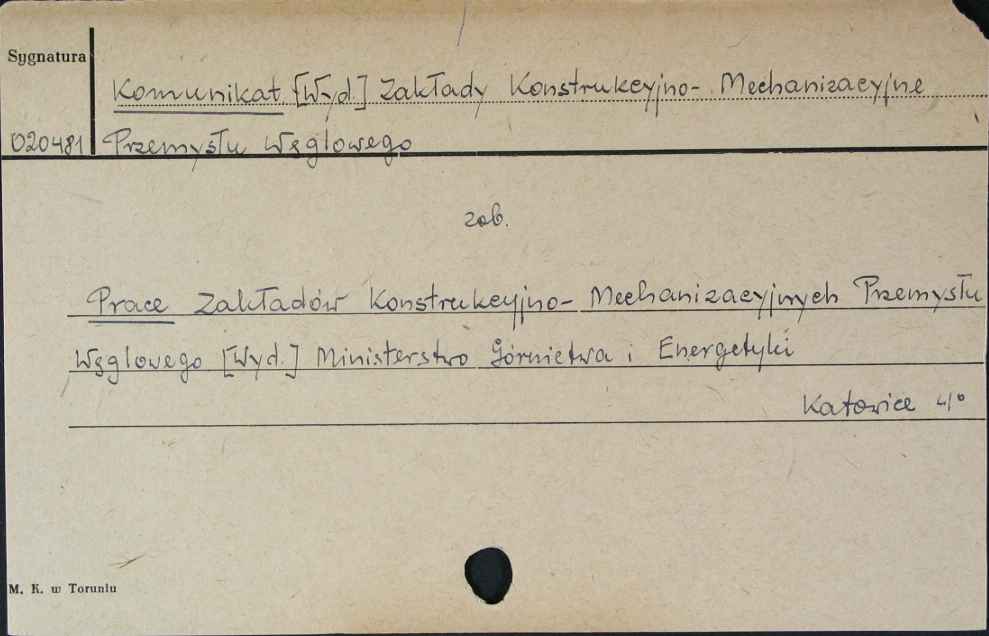 Sygnatura
Komunikat [Wyd.] Zakłady Konstrukcyjno-Mechanizacyjne
020481 Przemysłu Węglowego
zob.
Prace Zakładów Konstrukcyjno-Mechanizacyjnych Przemysłu
Węglowego [Wyd.] Ministerstwo Górnictwa i Energetyki
Katowice 4°
M. K. w Toruniu